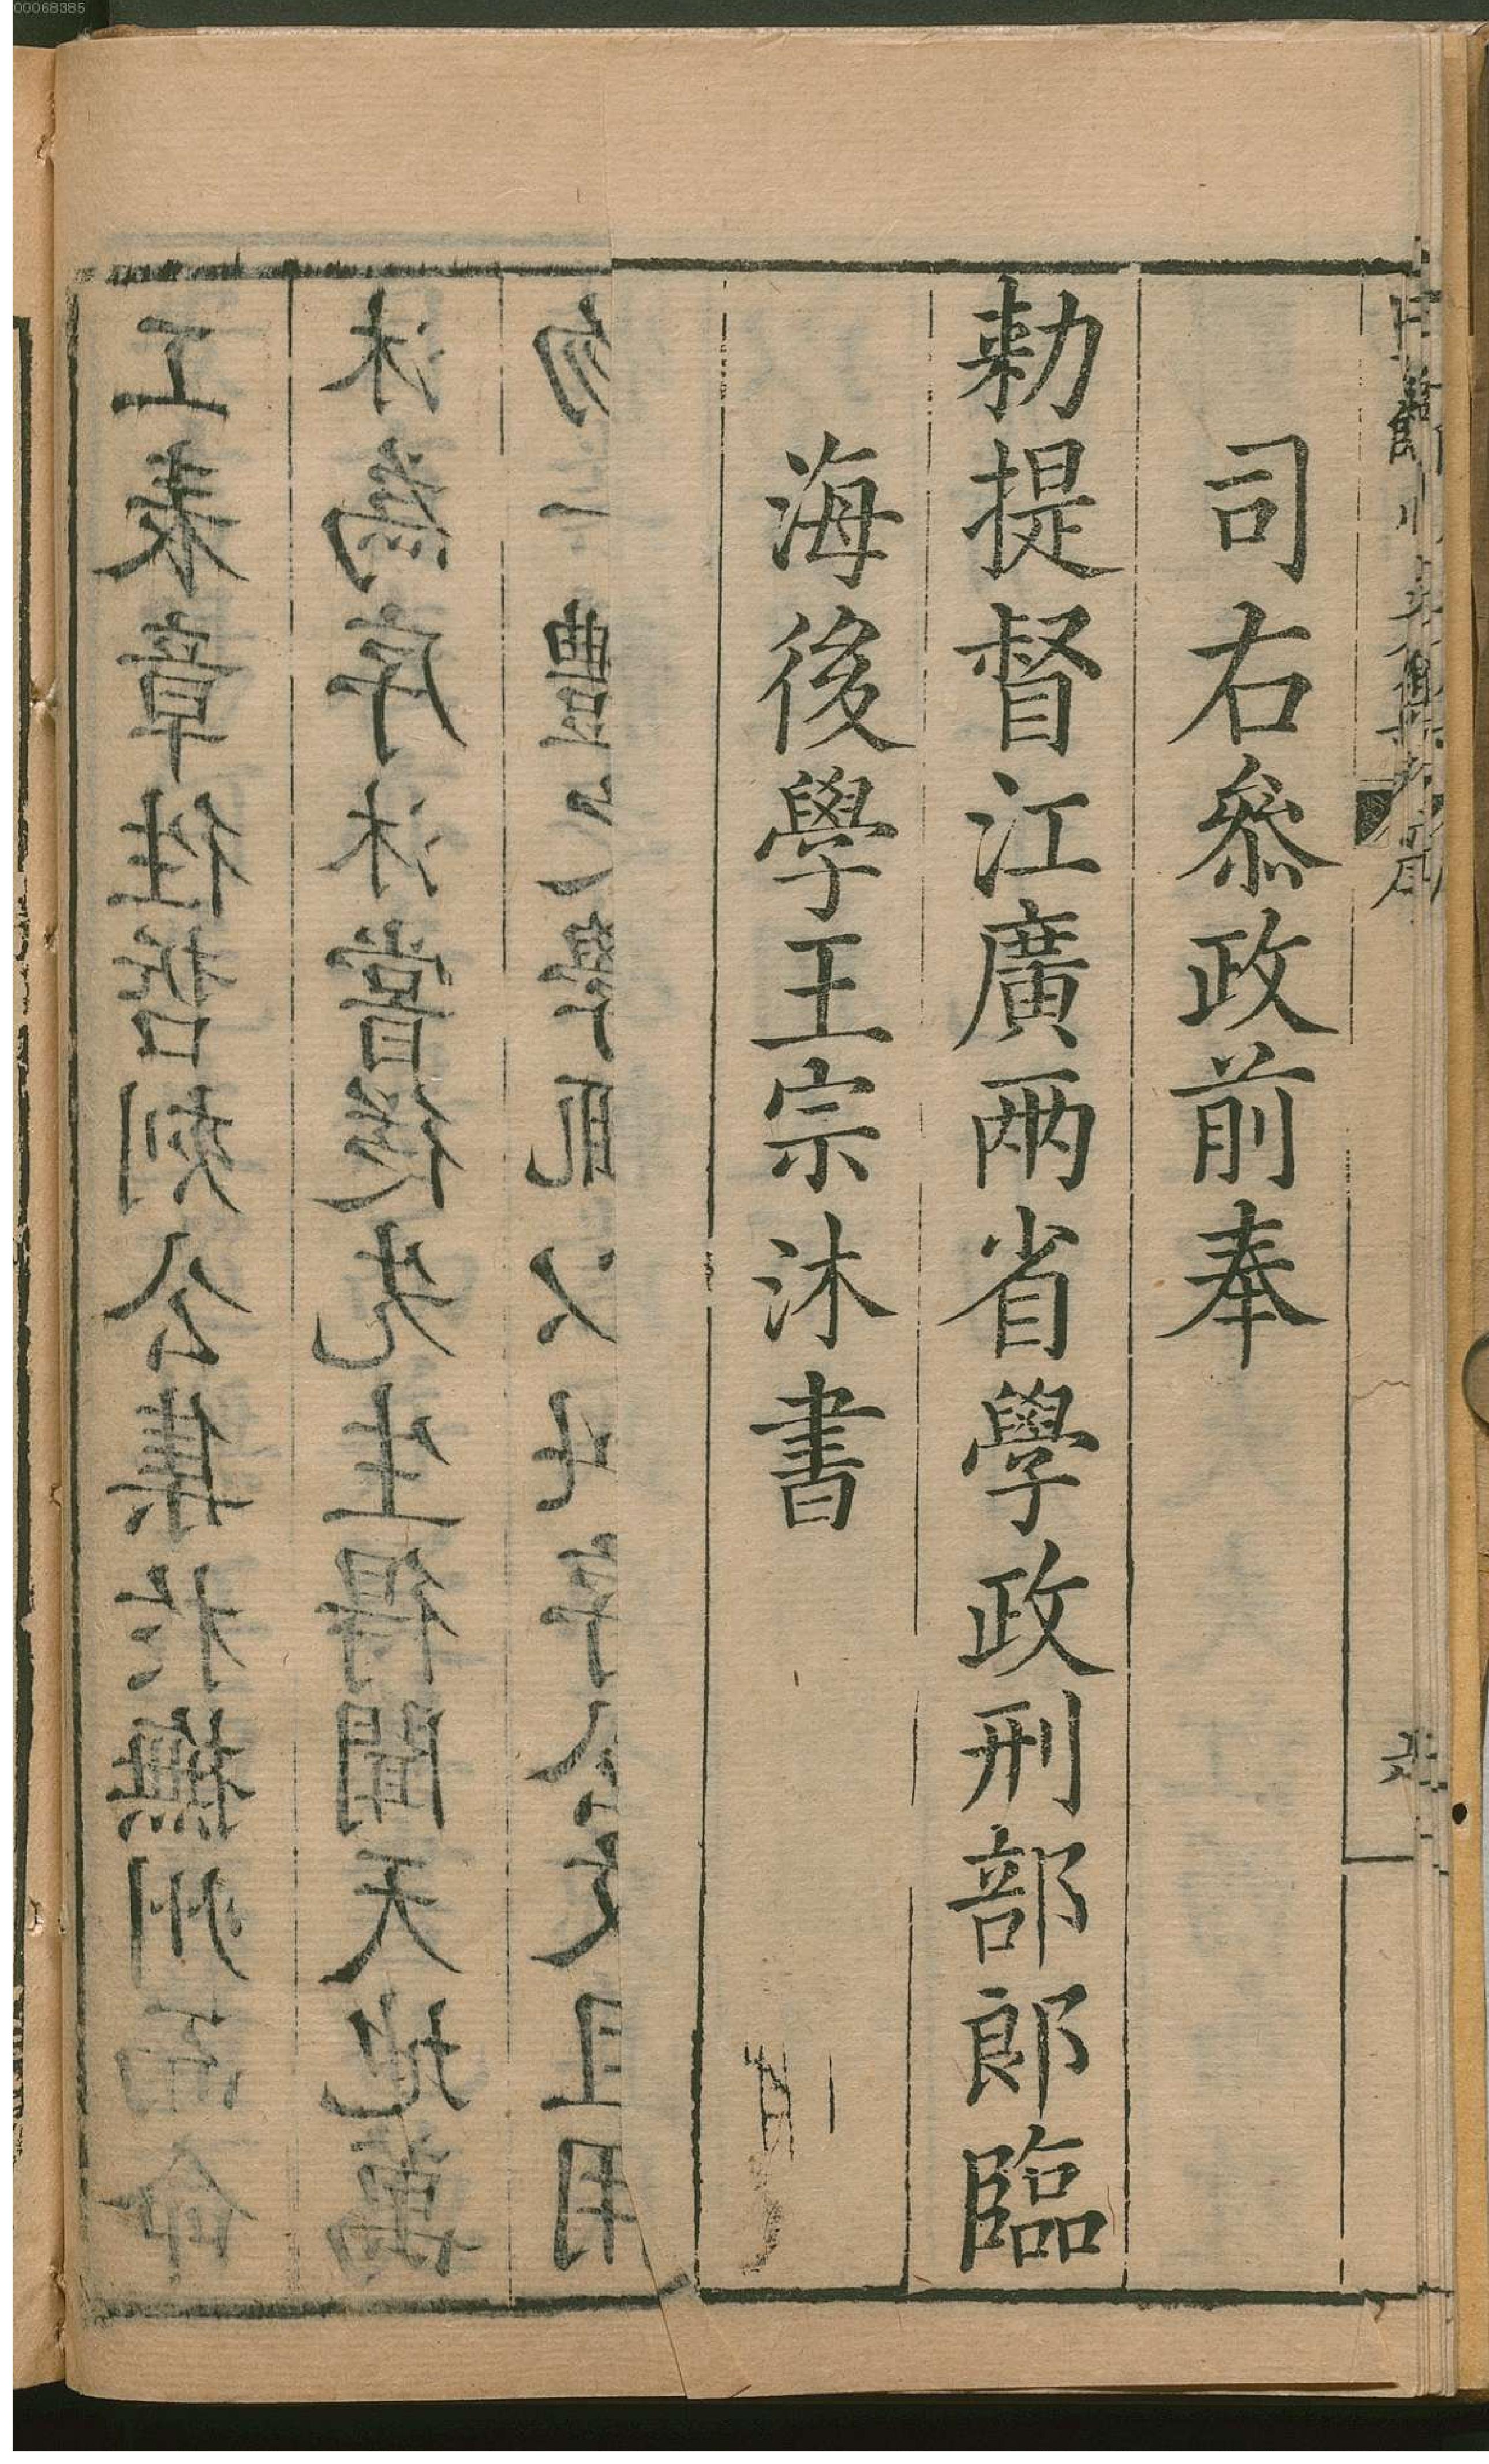 00068385
司右叅政前奉
勑提督江廣兩省學政刑部郎臨
海後學王宗沐書
工表章往哲刻公集於撫州而命
沐為序沐嘗從先生得聞天地萬
體之學以此序公文且用